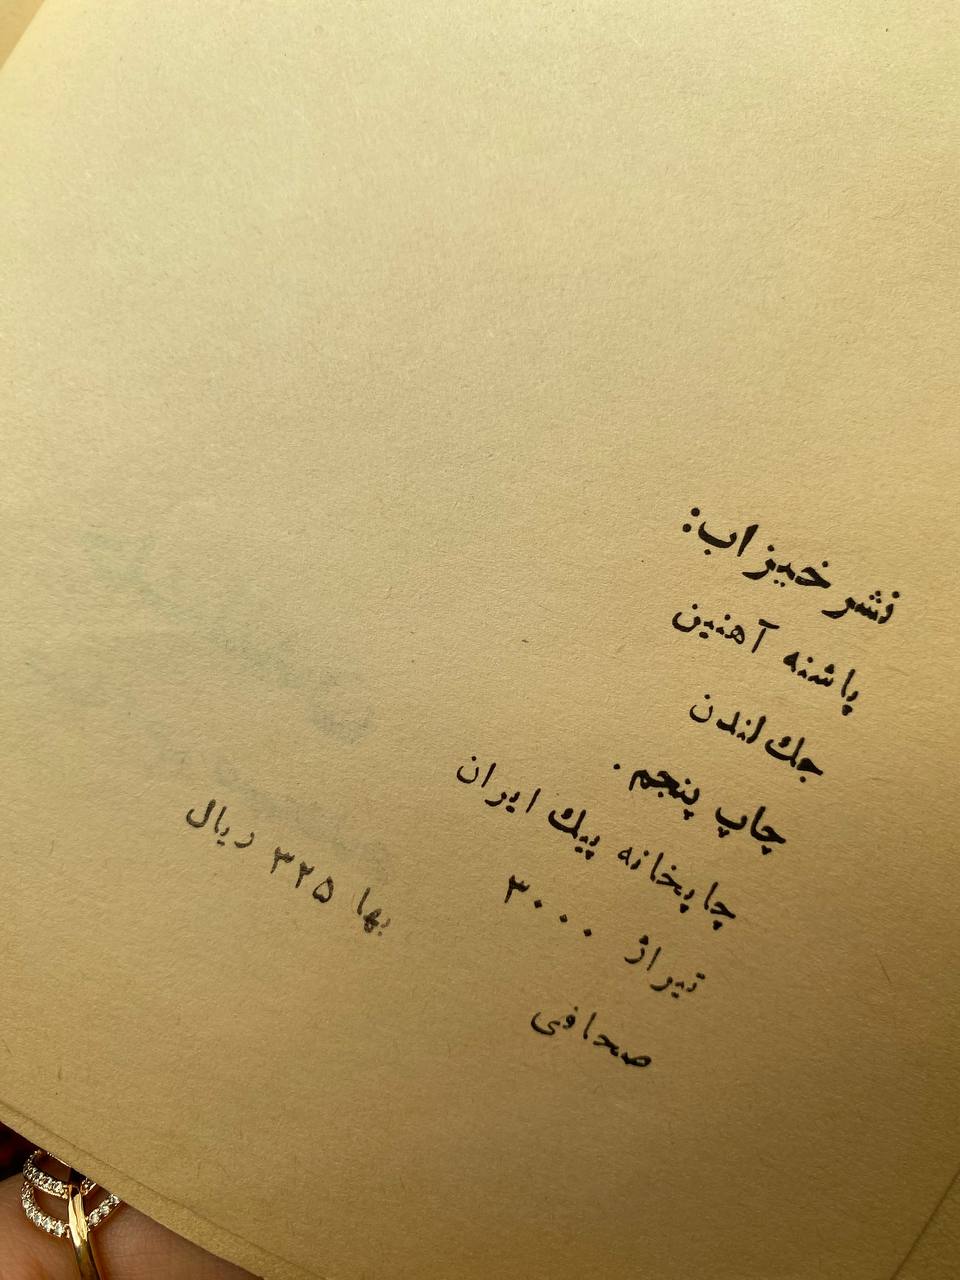 نشر خیزاب:
پاشنه آهنین
جك لندن
چاپ پنجم.
چاپخانه پیك ایران
تیراژ ۳۰۰۰
صحافی
بها ۳۲۵ ریال